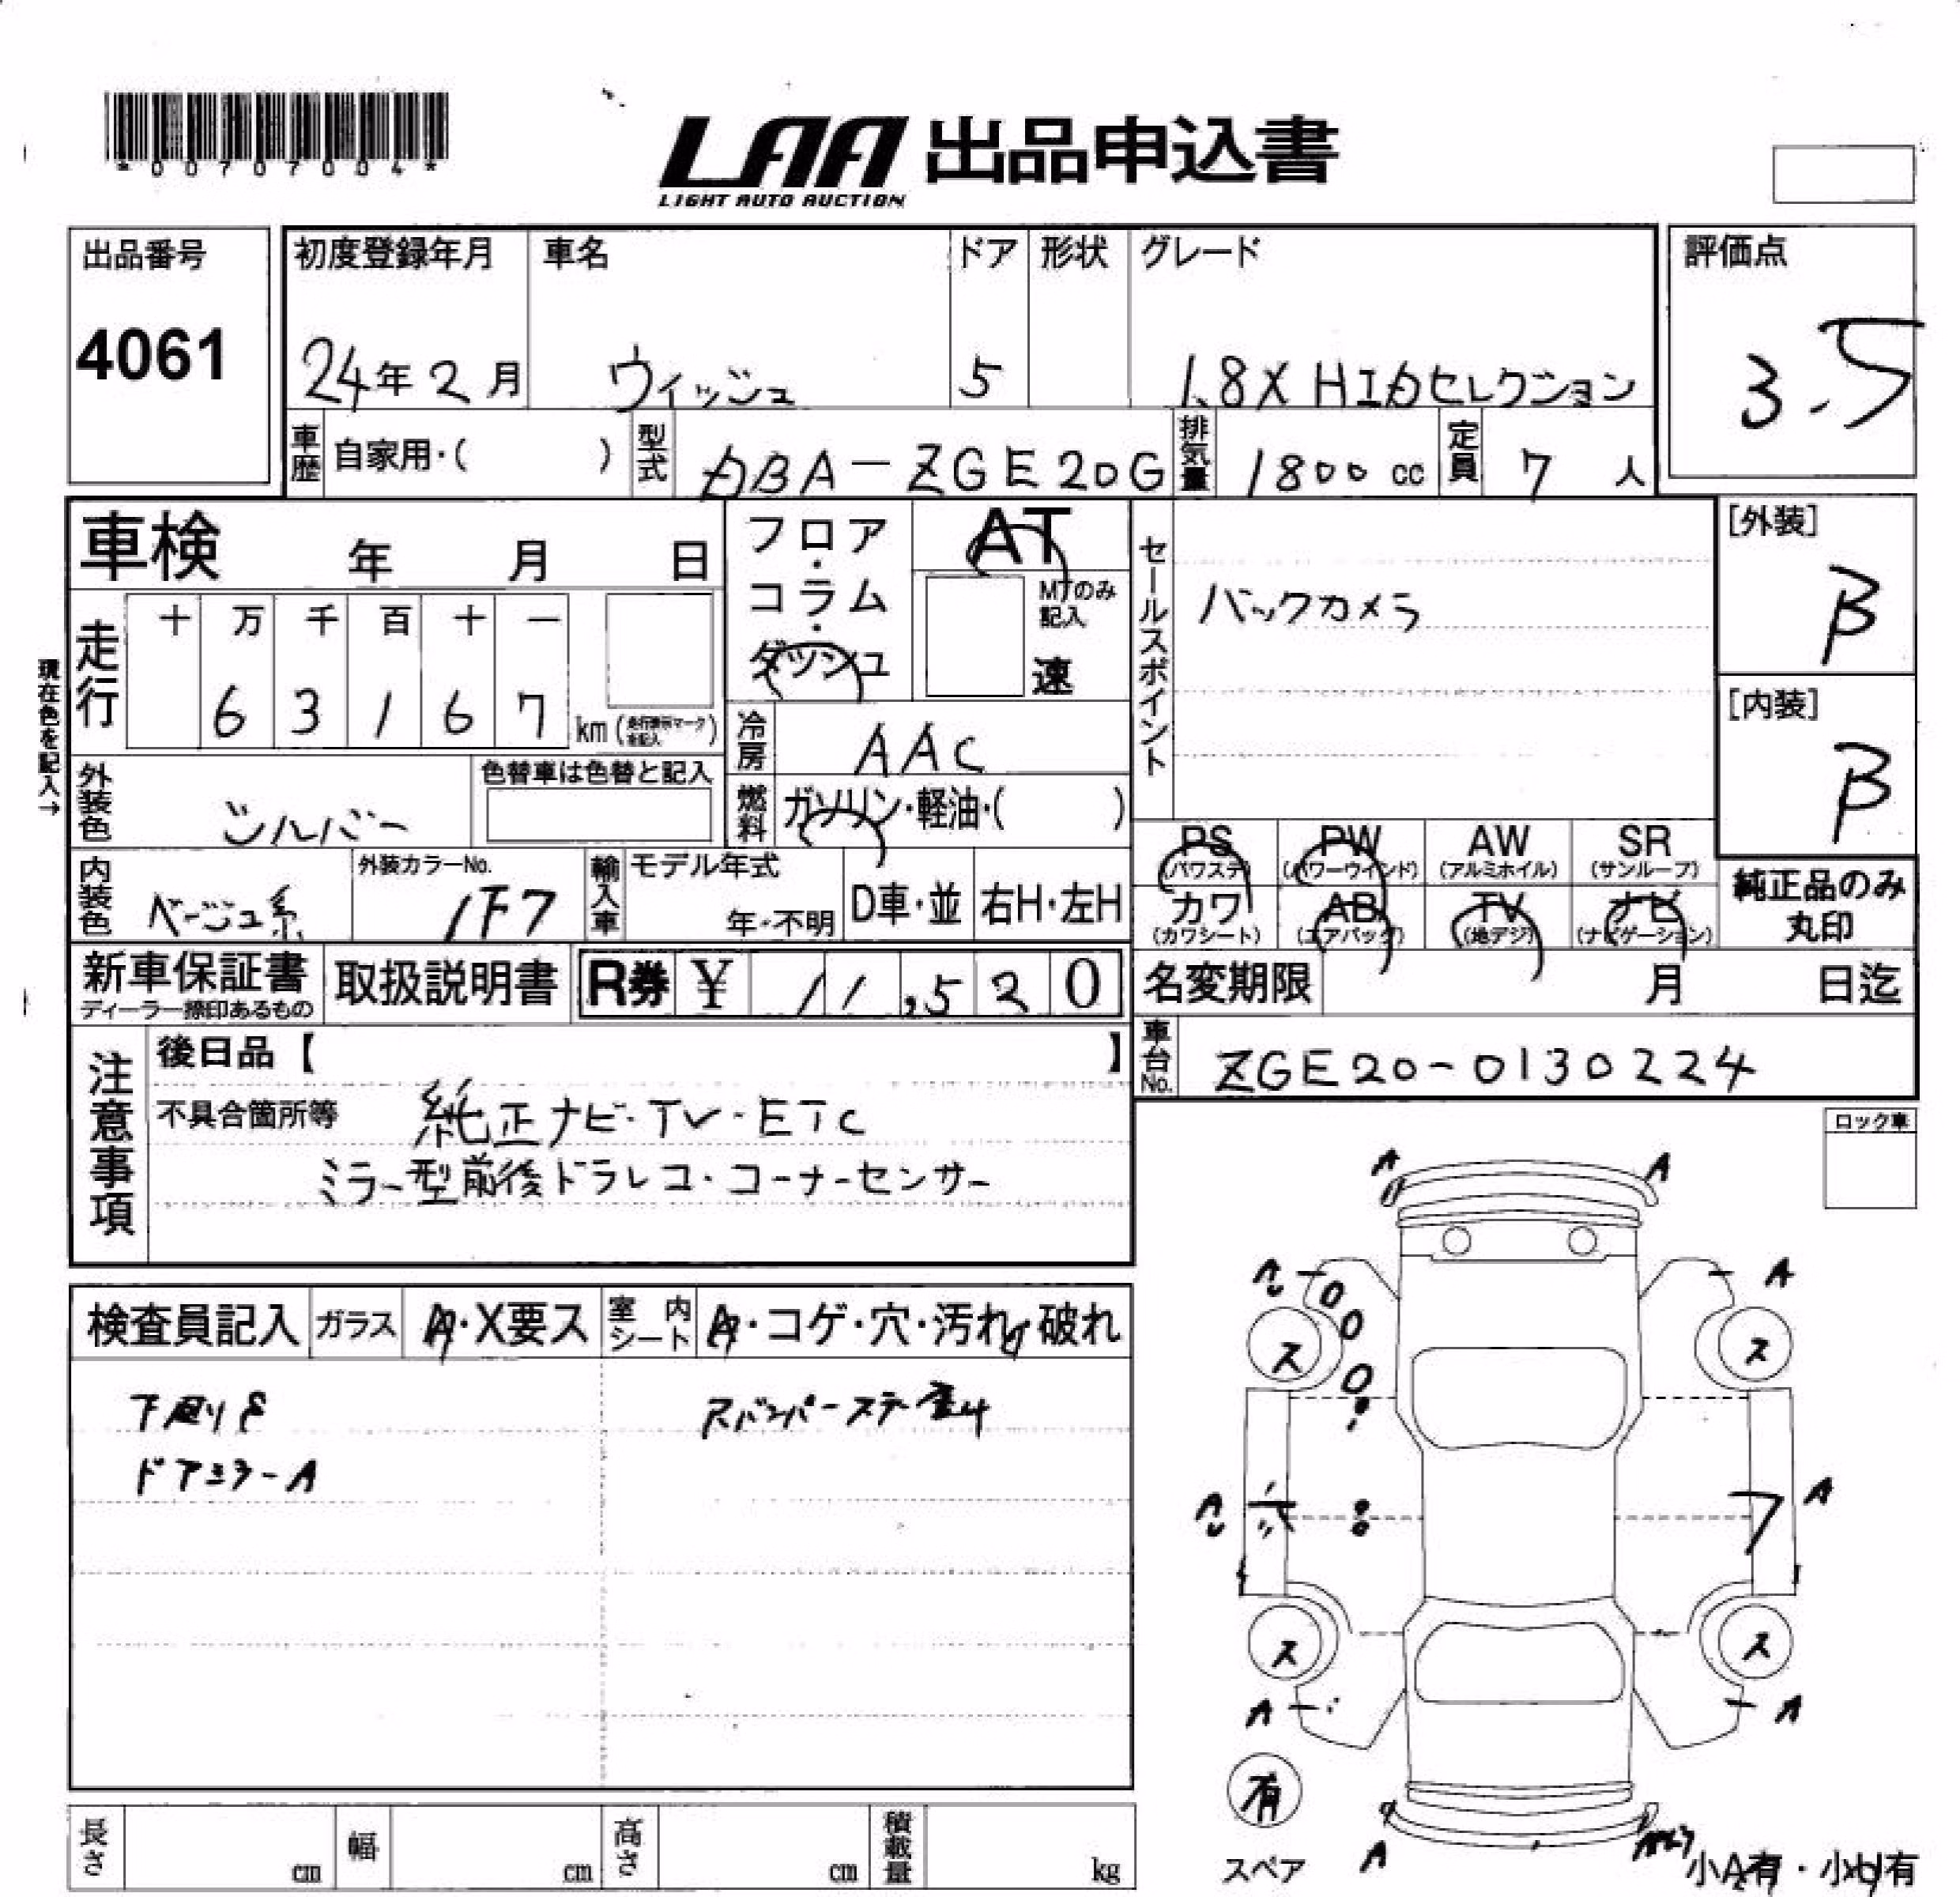 *00707004*
LAA 出品申込書
LIGHT AUTO AUCTION
出品番号
4061
初度登録年月
24年2月
車名
ウィッシュ
ドア
5
形状
グレード
1.8X HIDセレクション
評価点
3.5
車歴 自家用・( )
型式 DBA-ZGE20G
排気量 1800 cc
定員 7 人
車検 年 月 日
フロア・コラム・ダッシュ
AT
MTのみ記入
速
セールスポイント
バックカメラ
[外装]
B
[内装]
B
現在色を記入→
走行
十 万 千 百 十 一
6 3 1 6 7 km
冷房 AAC
外装色 シルバー
色替車は色替と記入
燃料 ガソリン・軽油・( )
PS (パワステ)
PW (パワーウインド)
AW (アルミホイル)
SR (サンルーフ)
カワ (カワシート)
AB (エアバッグ)
TV (地デジ)
ナビ (ナビゲーション)
純正品のみ丸印
内装色 ベージュ系
外装カラーNo. 1F7
輸入車 モデル年式
年・不明
D車・並
右H・左H
新車保証書
ディーラー捺印あるもの
取扱説明書
R券 ¥ 11,520
名変期限 月 日迄
車台No. ZGE20-0130224
注意事項
後日品【 】
不具合箇所等 純正ナビ・TV・ETC
ミラー型前後ドラレコ・コーナーセンサー
ロック車
検査員記入
ガラス A・X要ス
室内シート A・コゲ・穴・汚れ・破れ
下廻りS
ドアミラーA
A A
A A
ス ス
A A
ス ス
A A
有
スペア
A
小A有・小U有
長さ cm
幅 cm
高さ cm
積載量 kg